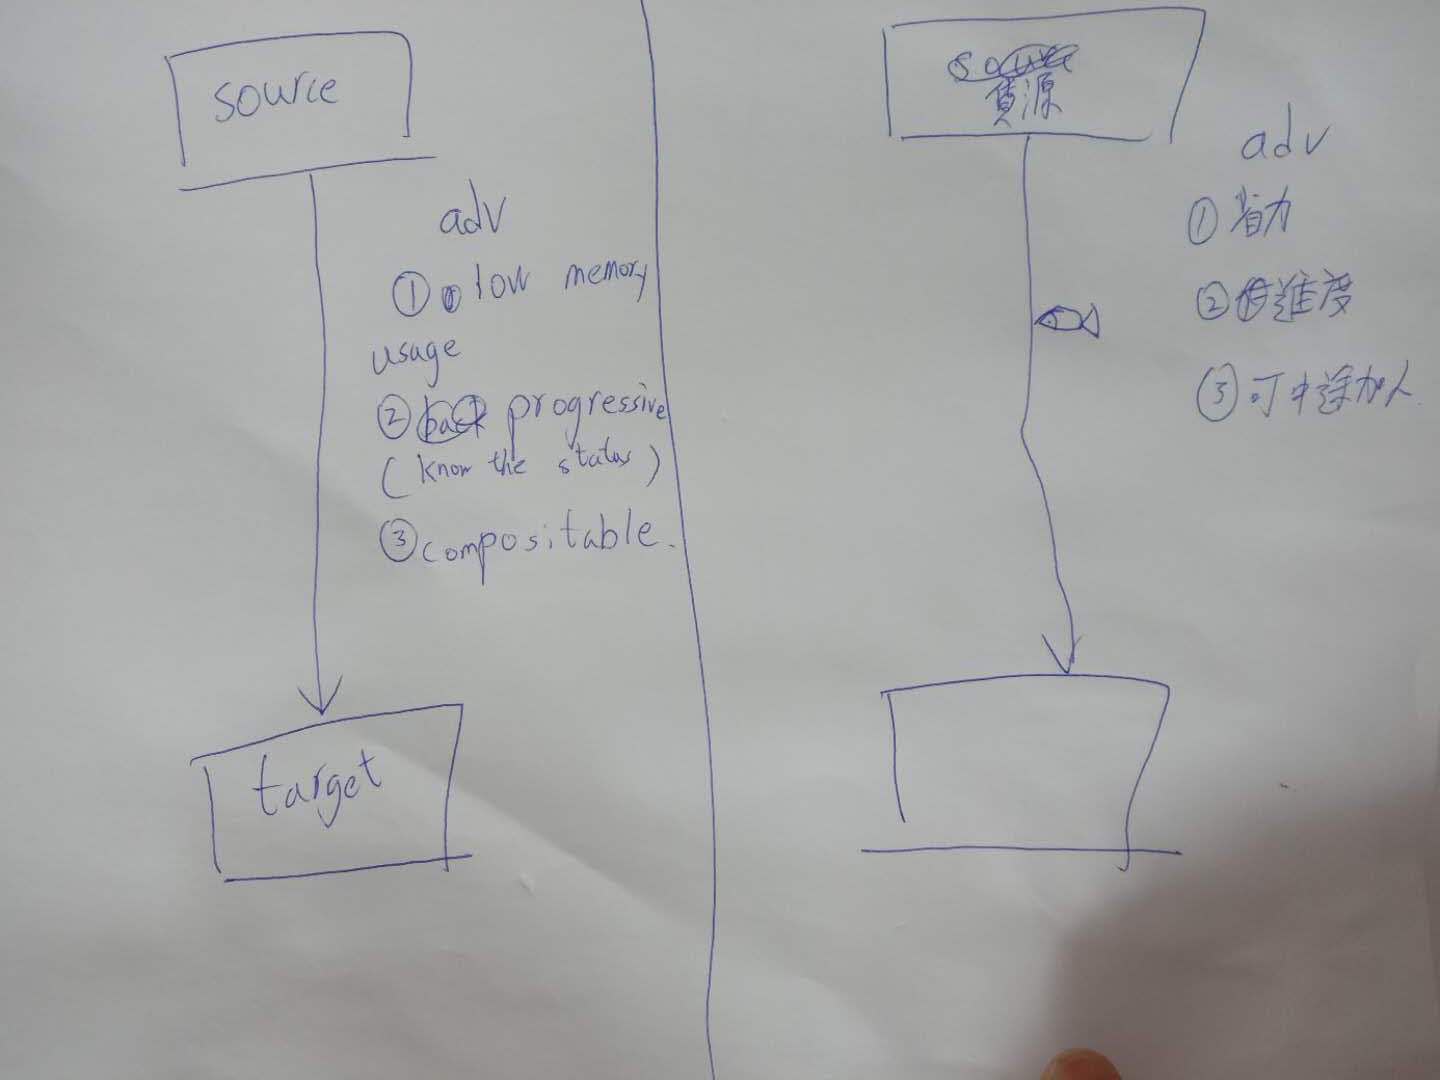 source
adv
① low memory
usage
② progressive
(know the status)
③ compositable.
target
貨源
adv
① 省力
② 進度
③ 可中途加入